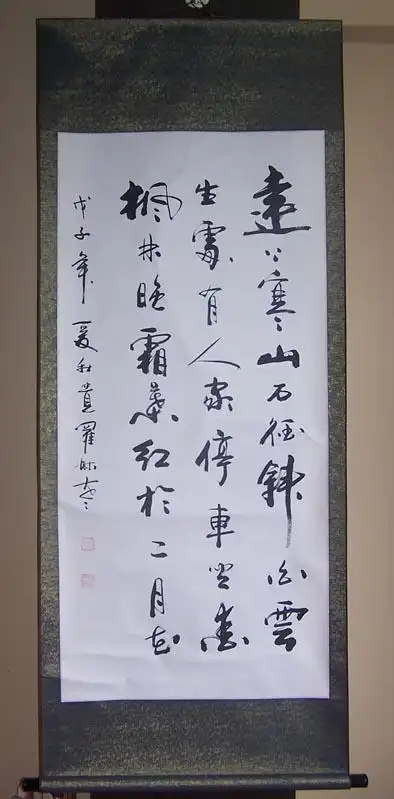 遠上寒山石徑斜白雲
生處有人家停車坐愛
楓林晚霜葉紅於二月花
戊子年夏